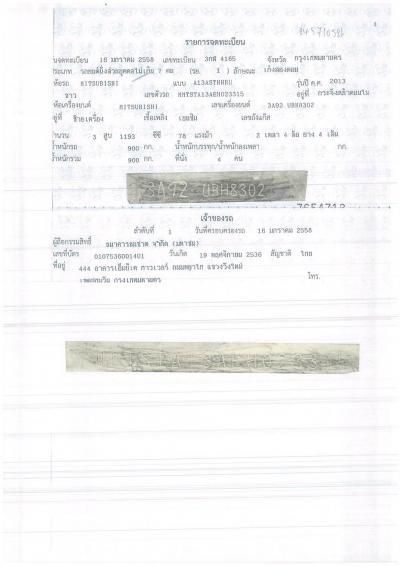 รายการจดทะเบียน
วันจดทะเบียน 16 มกราคม 2558 เลขทะเบียน 3กส 4165 จังหวัด กรุงเทพมหานคร
ประเภท รถยนต์นั่งส่วนบุคคลไม่เกิน 7 คน (รย. 1 ) ลักษณะ เก๋งสองตอน
ยี่ห้อรถ MITSUBISHI แบบ A13ASTHHRU รุ่นปี ค.ศ. 2013
ขาว เลขตัวรถ MMTSTA13AEH023315 อยู่ที่
ยี่ห้อเครื่องยนต์ MITSUBISHI เลขเครื่องยนต์ 3A92 UBH8302
อยู่ที่ ซ้ายเครื่อง เชื้อเพลิง เบนซิน เลขถังแก๊ส
จำนวน 3 สูบ 1193 ซีซี 78 แรงม้า 2 เพลา 4 ล้อ ยาง 4 เส้น
น้ำหนักรถ 900 กก. น้ำหนักบรรทุก/น้ำหนักลงเพลา กก.
น้ำหนักรวม 900 กก. ที่นั่ง 4 คน
3A92 UBH8302
เจ้าของรถ
ลำดับที่ 1 วันที่ครอบครองรถ 16 มกราคม 2558
ผู้ถือกรรมสิทธิ์ ธนาคารธนชาต จำกัด (มหาชน)
เลขที่บัตร 0107536001401 วันเกิด 19 พฤศจิกายน 2536 สัญชาติ ไทย
ที่อยู่ 444 อาคารเอ็มบีเค ทาวเวอร์ ถนนพญาไท แขวงวังใหม่
เขตปทุมวัน กรุงเทพมหานคร โทร.